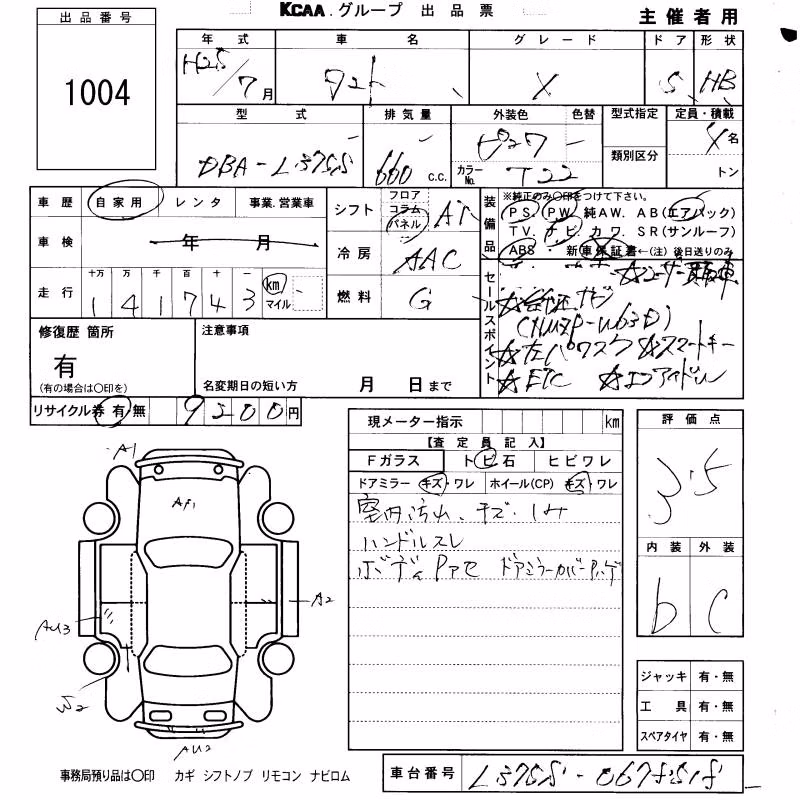 KCAA.グループ 出品票
主催者用
出品番号
1004
年式 車名 グレード ドア 形状
H25/7月 タント X 5 HB
型式 排気量 外装色 色替 型式指定 定員・積載
DBA-L375S 660 c.c. ピンク 名
カラーNo. T22 類別区分 トン
車歴 自家用 レンタ 事業.営業車
車検 年 月
走行 十万 万 千 百 十 一
141743 km マイル
シフト フロア コラム パネル AT
冷房 AAC
燃料 G
装備品 ※純正のみ○印をつけて下さい。
PS PW 純AW. AB(エアバック)
TV. ナビ カワ. SR(サンルーフ)
ABS 新車保証書←(注)後日送りのみ
セールスポイント
☆ユーザー買取車
ナビ
☆左パワスラ ☆スマートキー
☆ETC ☆エコアイドル
修復歴 箇所
有
(有の場合は○印を)
注意事項
名変期日の短い方 月 日まで
リサイクル券 有・無 9200円
現メーター指示 km
【査定員記入】
Fガラス トビ石 ヒビワレ
ドアミラー キズ・ワレ ホイール(CP) キズ・ワレ
室内汚れ、キズ・
ハンドルスレ
ドアミラーカバー
評価点
3.5
内装 外装
b C
ジャッキ 有・無
工具 有・無
スペアタイヤ 有・無
A1
Af1
A2
AU3
W2
AU2
事務局預り品は○印 カギ シフトノブ リモコン ナビロム
車台番号 L375S-